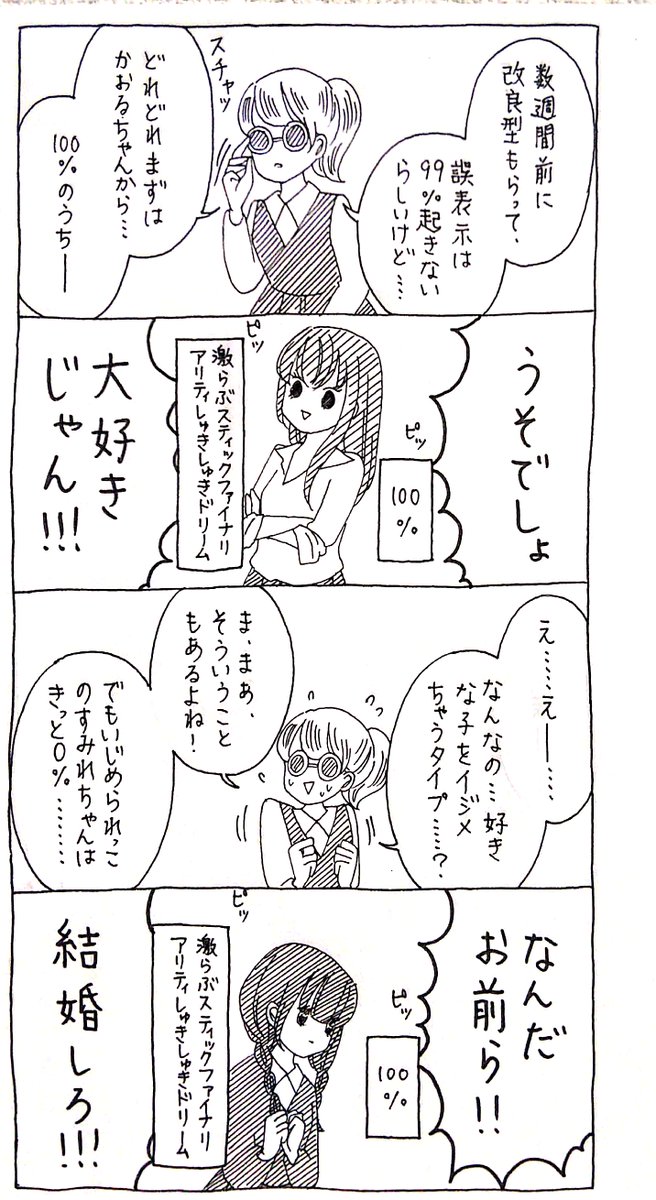 数週間前に
改良型もらって、
誤表示は
99%起きない
らしいけど……
スチャッ
どれどれまずは
かおるちゃんから…
100%のうちー
うそでしょ
ピッ
100
%
ピッ
激らぶスティックファイナリ
アリティしゅきしゅきドリーム
大好き
じゃん!!!
え……えー……
なんなの…好き
な子をイジメ
ちゃうタイプ……?
ま、まあ、
そういうこと
もあるよね!
でもいじめられっこ
のすみれちゃんは
きっと0%………
なんだ
お前ら!!
ピッ
100
%
ピッ
激らぶスティックファイナリ
アリティしゅきしゅきドリーム
結婚しろ!!!